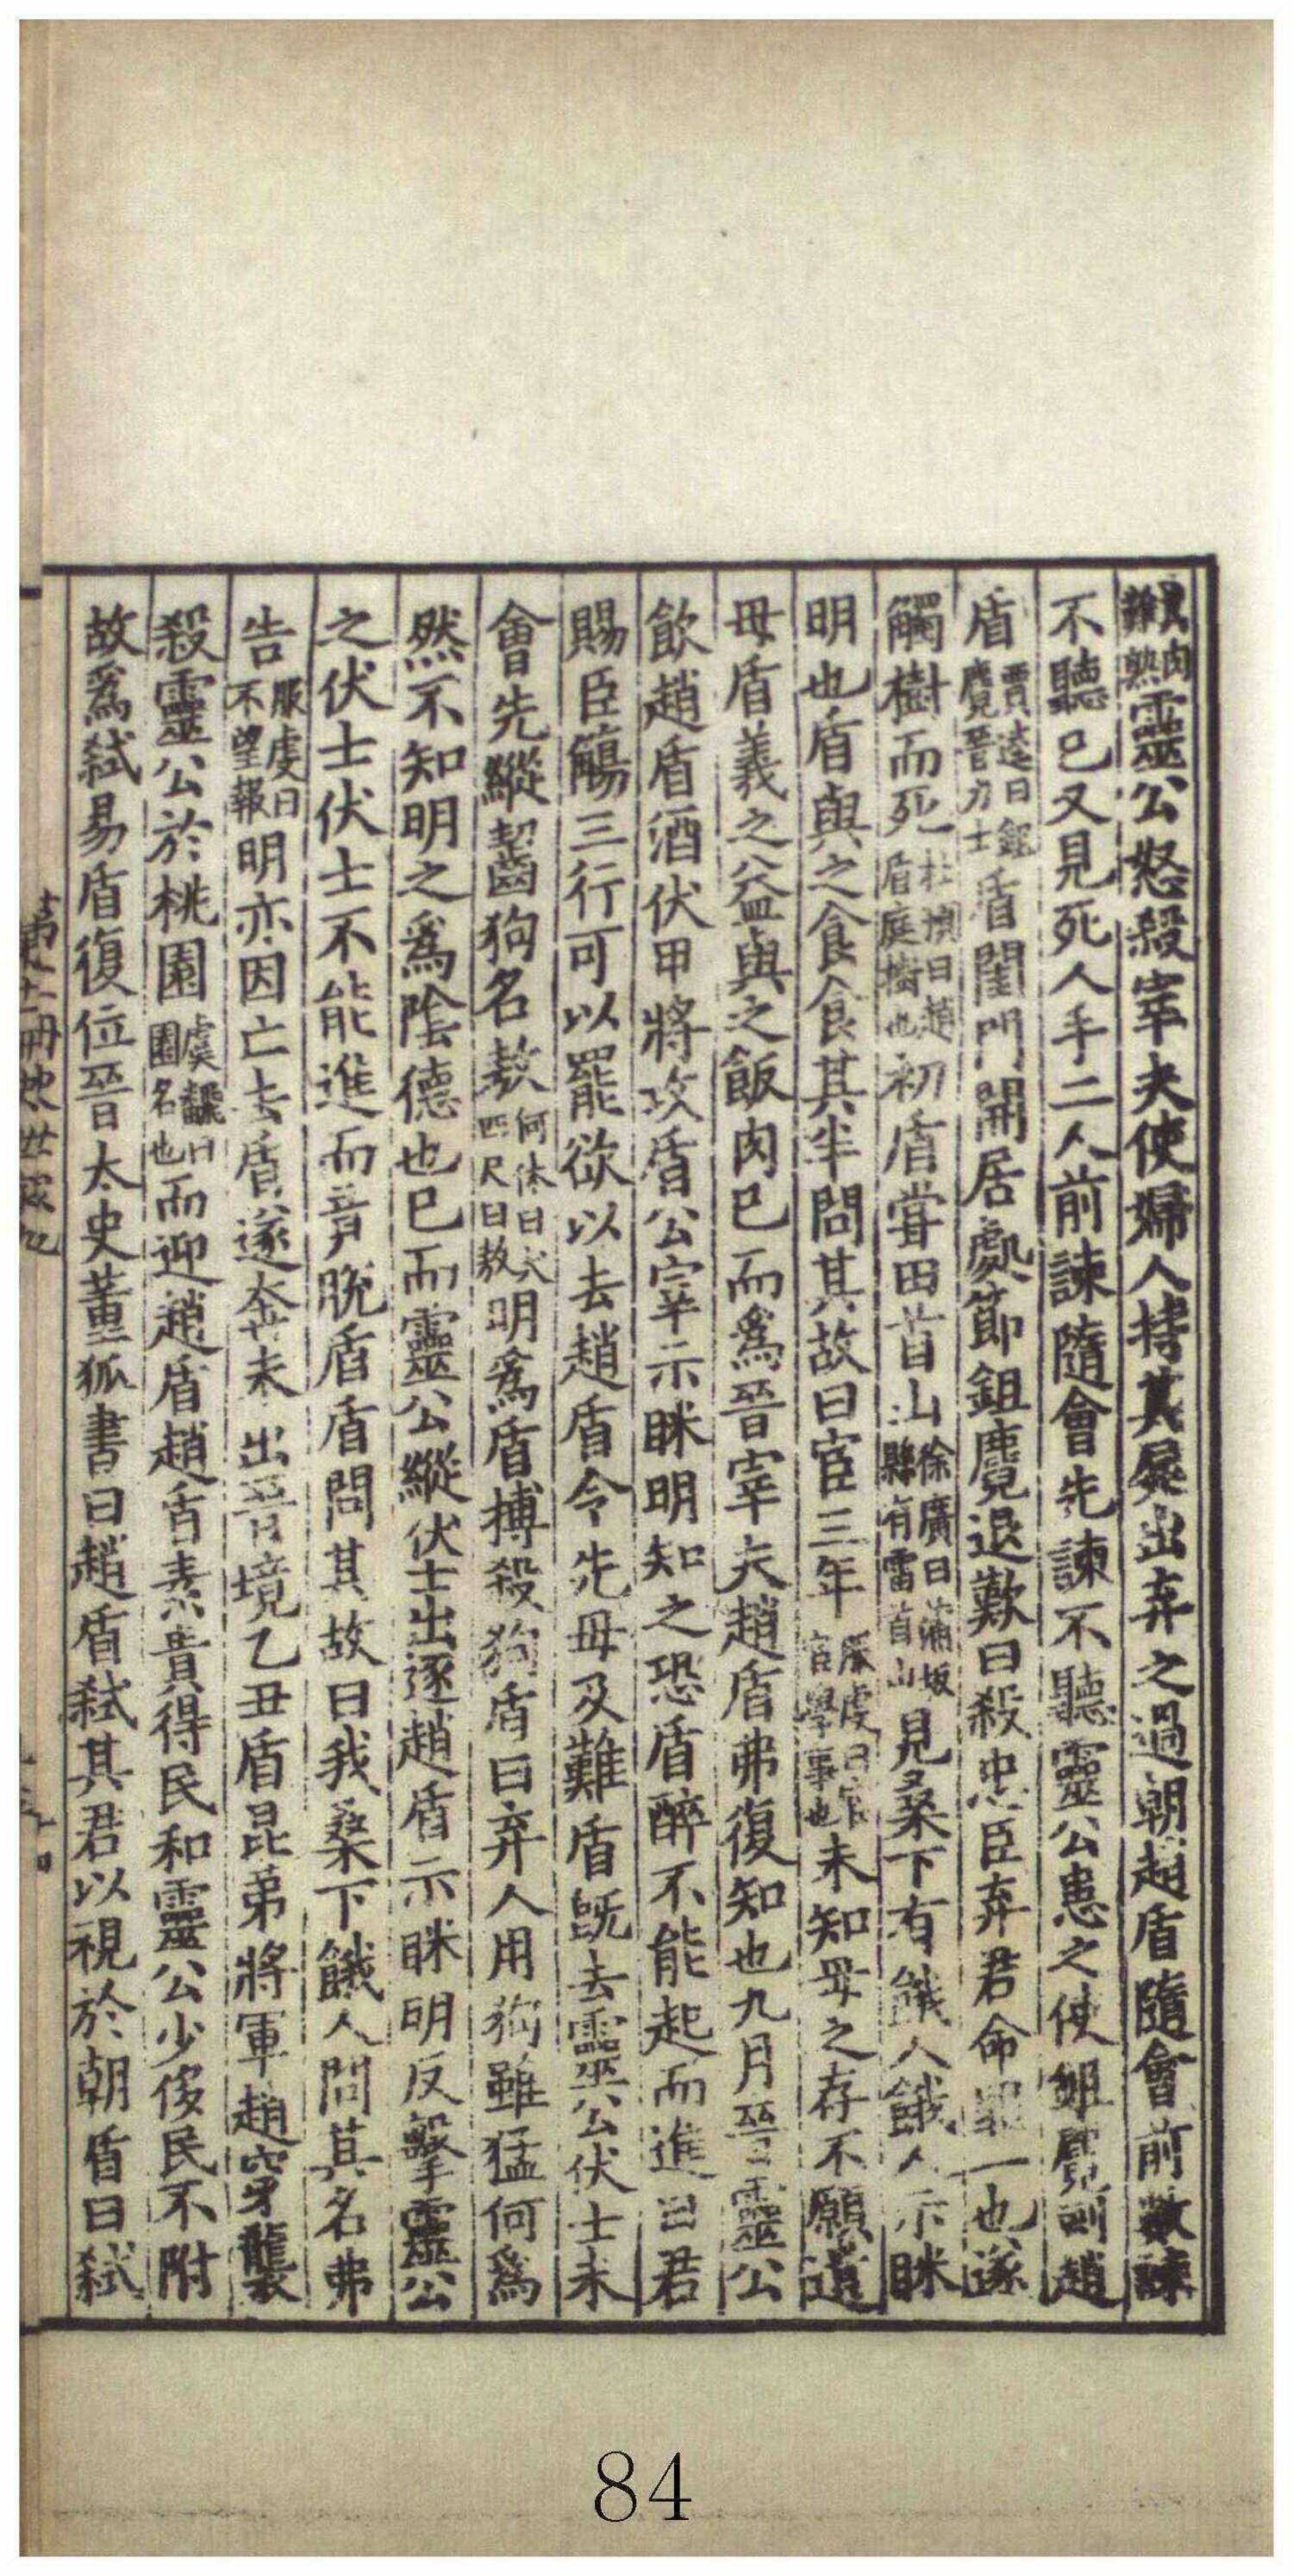 異肉難熟靈公怒殺宰夫使婦人持其屍出弃之過朝趙盾隨會前數諫
不聽已又見死人手二人前諫隨會先諫不聽靈公患之使鉏麑刺趙
盾賈逵曰鉏麑晉力士盾閨門開居處節鉏麑退歎曰殺忠臣弃君命罪一也遂
觸樹而死杜預曰趙盾庭樹也初盾甞田首山徐廣曰蒲坂縣有雷首山見桑下有餓人餓人示眯
明也盾與之食食其半問其故曰宦三年服虔曰宦宦學事也未知母之存不願遺
母盾義之益與之飯肉已而爲晉宰夫趙盾弗復知也九月晉靈公
飲趙盾酒伏甲將攻盾公宰示眯明知之恐盾醉不能起而進曰君
賜臣觴三行可以罷欲以去趙盾令先毋及難盾旣去靈公伏士未
會先縱齧狗名敖何休曰犬四尺曰敖明爲盾搏殺狗盾曰弃人用狗雖猛何爲
然不知明之爲隂德也已而靈公縱伏士出逐趙盾示眯明反擊靈公
之伏士伏士不能進而竟脫盾盾問其故曰我桑下餓人問其名弗
告服虔曰不望報明亦因亡去盾遂奔未出晉境乙丑盾昆弟將軍趙穿襲
殺靈公於桃園虞翻曰園名也而迎趙盾趙盾素貴得民和靈公少侈民不附
故爲弑易盾復位晉太史董狐書曰趙盾弑其君以視於朝盾曰弑
84